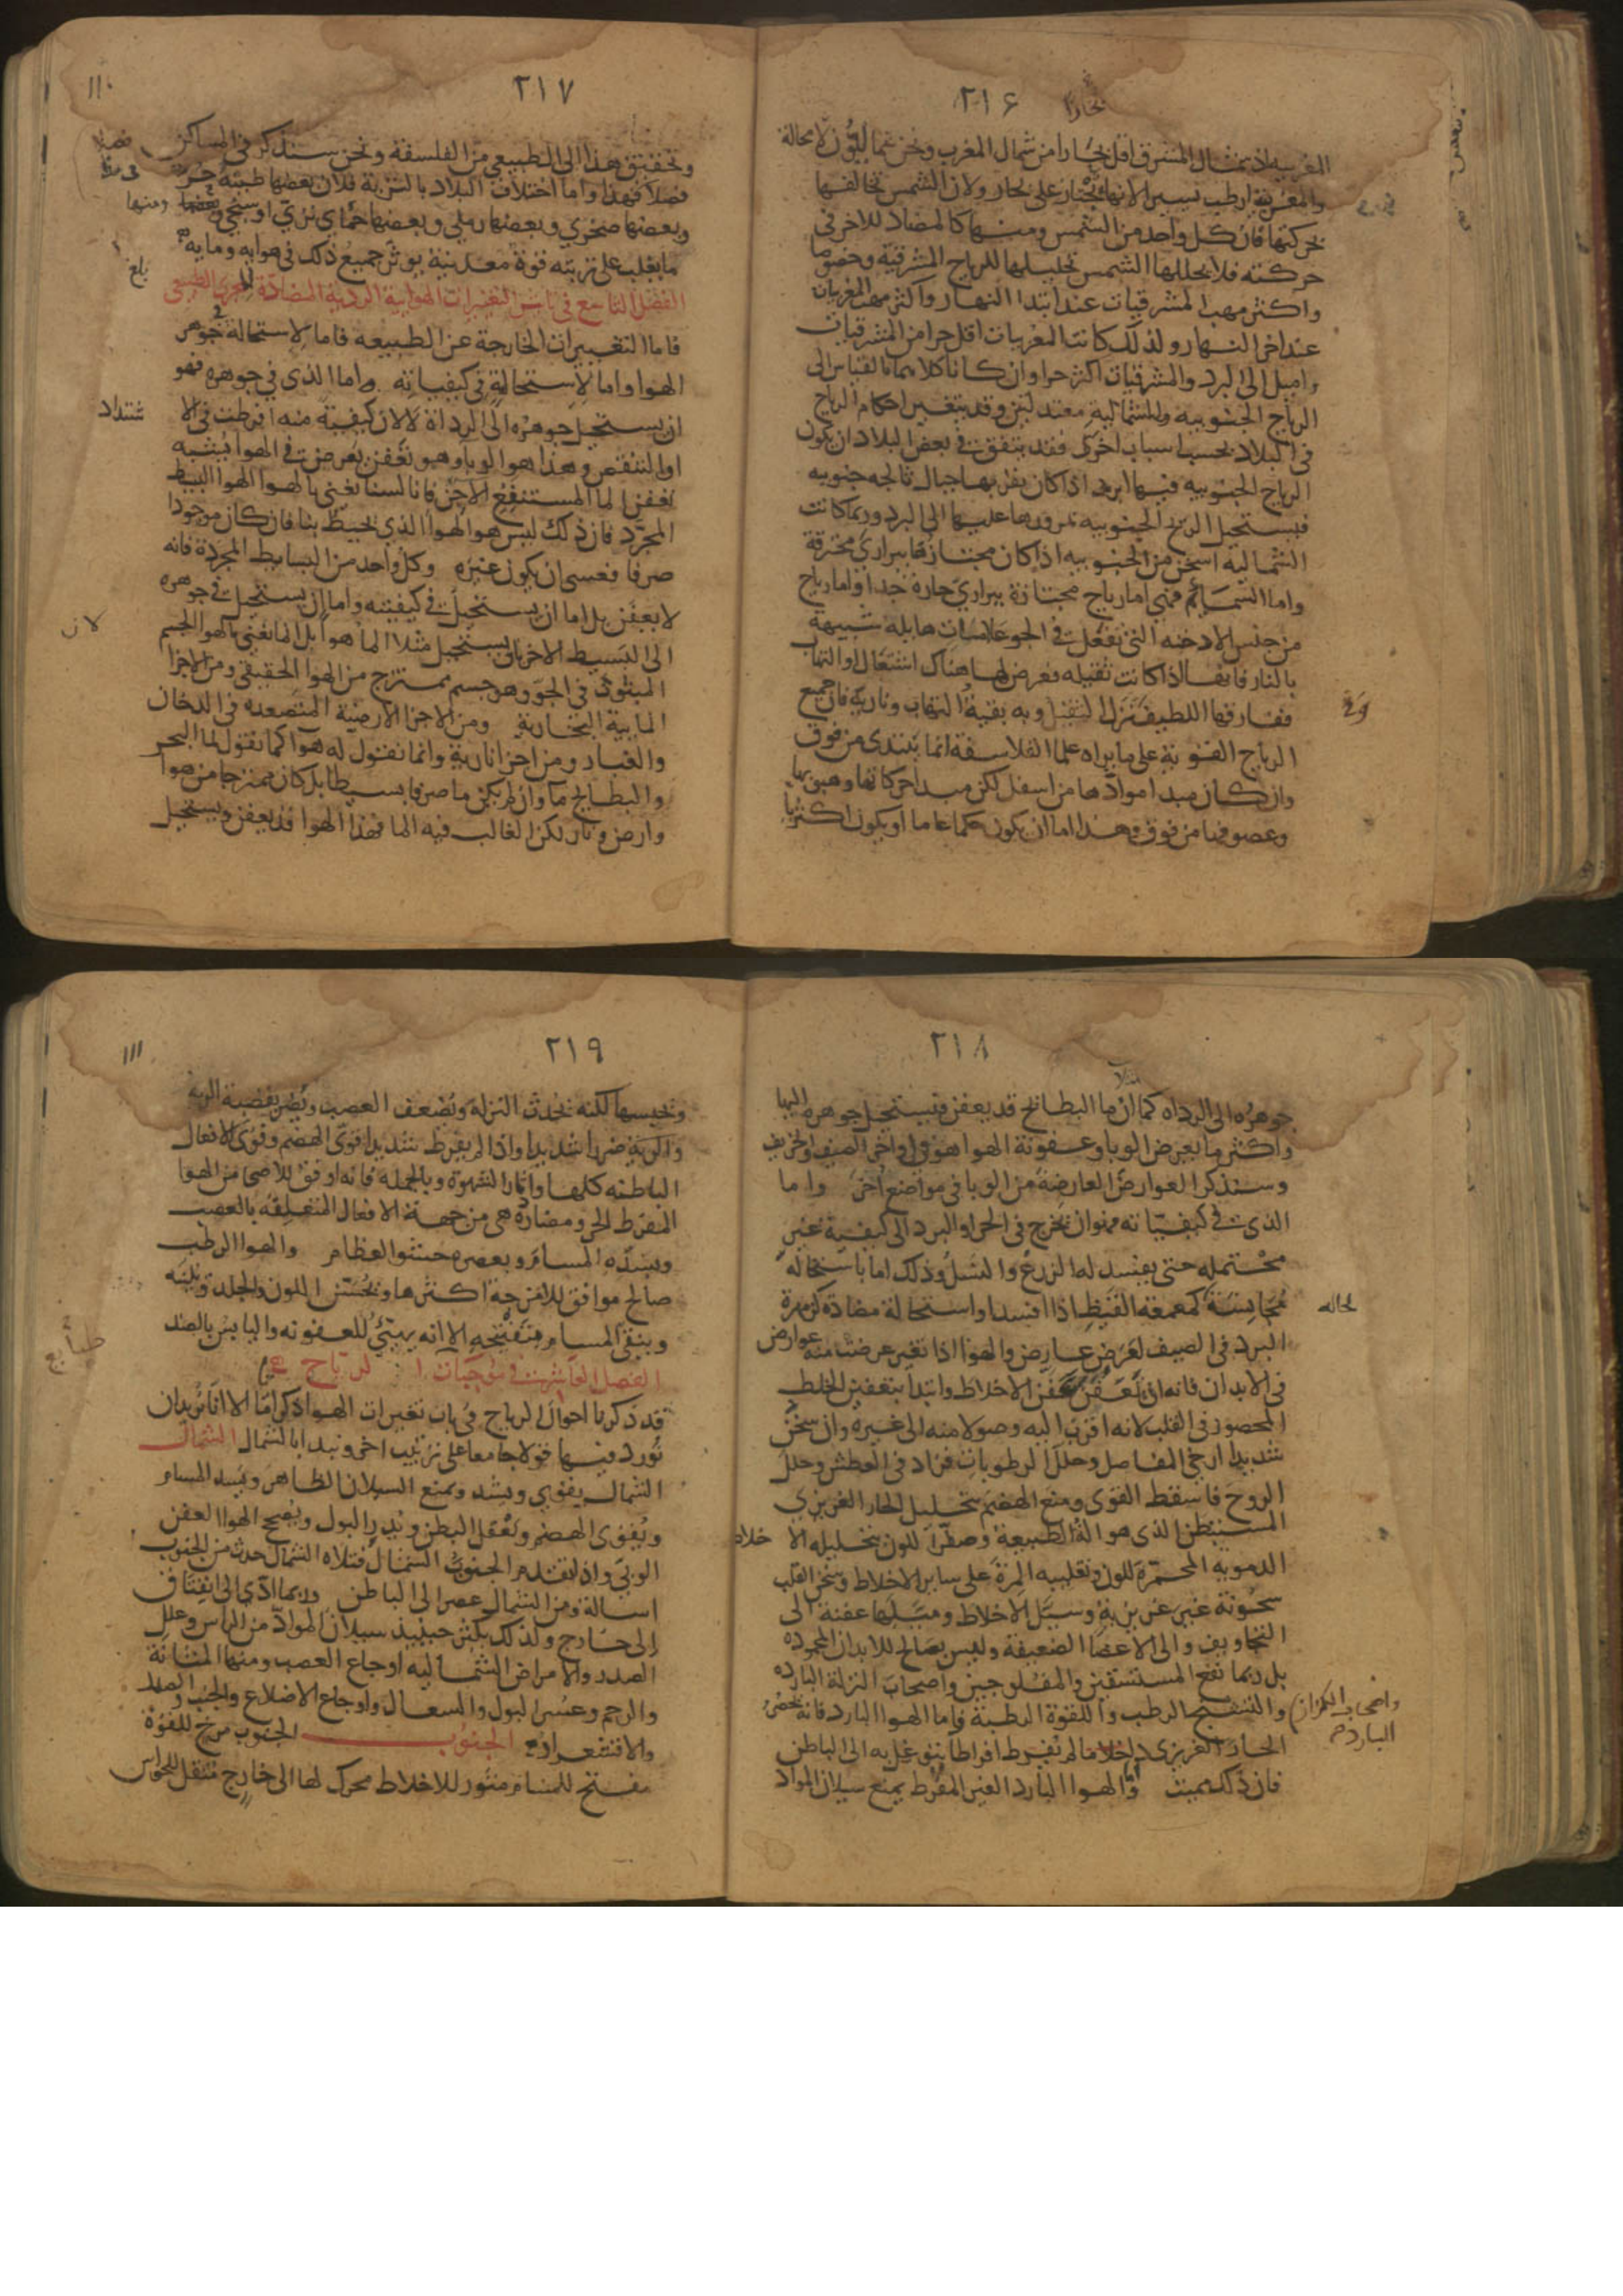 ٢١۶
بخارا
المغربيه اذ شمال المشرق اقل بخارا من شمال المغرب ونحن شماليون لا محالة
والمغربية ارطب يسيرا لانها تجتاز على بحار ولان الشمس تخالفها
بحركتها فان كل واحد من الشمس ومنها كالمضاد للاخر في
حركته فلا يحللها الشمس تحليلها للرياح المشرقية وخصوصا
واكثر مهب المشرقيات عند ابتدا النهار واكثر مهب المغربيات
عند اخر النهار ولذلك كانت المغربيات اقل حرا من المشرقيات
واميل الى البرد والمشرقيات اكثر حرا وان كانا كلاهما بالقياس الى
الرياح الجنوبيه والشمالية معتدلين وقد يتغير احكام الرياح
في البلاد بحسب اسباب اخرى فقد يتفق في بعض البلاد ان يكون
الرياح الجنوبيه فيها ابرد اذا كان بقربها جبال ثالجه جنوبيه
فيستحيل الريح الجنوبيه بمرورها عليها الى البرد وربما كانت
الشماليه اسخن من الجنوبيه اذا كان مجتازها ببراري محترقة
واما السمايم فهي اما رياح مجتازة ببراري حارة جدا واما رياح
من جنس الادخنه التي تفعل في الجو علامات هايله شبيهة
بالنار فانها اذا كانت ثقيله فعرض لها هناك اشتعال او التهاب
ففارقها اللطيف نزل الثقيل وبه بقية التهاب ونارية فان جميع
الرياح القوية على ما يراه علما الفلاسفة انما يبتدى من فوق
وان كان مبدا موادها من اسفل لكن مبدا حركاتها وهبوبها
وعصوفها من فوق وهذا اما ان يكون حكما عاما او يكون اكثريا
٢١٧
١١٠
وتحقيق هذا الى الطبيعي من الفلسفة ونحن سنذكر في المساكن
فصلا في هذا واما اختلاف البلاد بالتربة فلان بعضها طينة حر
وبعضها صخري وبعضها رملي وبعضها حماي نزي او سبخي ومنها
ما يغلب على تربته قوة معدنية يوثر جميع ذلك في هوايه ومايه
بلغ
الفصل التاسع في تاثير التغيرات الهوايية الردية المضادة للمجرى الطبيعي
فاما التغييرات الخارجة عن الطبيعه فاما لاستحالة في جوهر
الهوا واما لاستحالة في كيفياته واما الذي في جوهره فهو
ان يستحيل جوهره الى الرداة لا لان كيفية منه افرطت في الا شتداد
او التنقص وهذا هو الوبا وهو تعفن يعرض في الهوا يشبه
تعفن الما المستنقع الاجن فانا لسنا نعني بالهوا الهوا البسيط
المجرد فان ذلك ليس هو الهوا الذي يحيط بنا فان كان موجودا
صرفا فعسى ان يكون غيره وكل واحد من البسايط المجردة فانه
لا يعفن بل اما ان يستحيل في كيفيته واما ان يستحيل في جوهره
الى البسيط الاخر بان يستحيل مثلا الما هوا بل انما نعني بالهوا الجسم
المبثوث في الجو وهو جسم ممتزج من الهوا الحقيقي ومن الاجزا
المايية البخارية ومن الاجزا الارضية المتصعده في الدخان
والغبار ومن اجزا نارية وانما نقول له هوا كما نقول لما البحر
والبطايح ما وان لم يكن ما صرفا بسيطا بل كان ممتزجا من هوا
وارض ونار لكن الغالب فيه الما فهذا الهوا قد يعفن ويستحيل
٢١٨
جوهره الى الرداه كما ان ما البطايح قد يعفن فيستحيل جوهره اليها
واكثر ما يعرض الوبا وعفونة الهوا هو في اواخر الصيف والخريف
وسنذكر العوارض العارضة من الوبا في مواضع اخر واما
الذي في كيفياته فهو ان يخرج في الحر او البرد الى كيفية غير
محتمله حتى يفسد له الزرع والنسل وذلك اما باستحاله
مجانسة كمعمعه القيظ اذا افسد او استحالة مضادة كزمهرة
البرد في الصيف لعرض عارض والهوا اذا تغير عرضت منه عوارض
في الابدان فانه اذا تعفن عفن الاخلاط وابتدا بتعفين الخلط
المحصور في القلب لانه اقرب اليه وصولا منه الى غيره وان سخن
شديدا ارخى المفاصل وحلل الرطوبات فزاد في العطش وحلل
الروح فاسقط القوى ومنع الهضم بتحليل الحار الغريزي
المستبطن الذي هو الة الطبيعة وصفر اللون بتحليله الا خلاط
الدمويه المحمرة للون وتغليبه المرة على ساير الاخلاط وسخن القلب
سخونة غير غريزية وسيل الاخلاط ومبلها عفنة الى
التجاويف والى الاعضا الضعيفة وليس بصالح للابدان المحموده
بل ربما نفع المستسقين والمفلوجين واصحاب النزلة البارده
واصحاب الكزاز
البارد
والتشنج الرطب واللقوة الرطبة واما الهوا البارد فانه يحصر
الحار الغريزي داخلا ما لم يفرط افراطا يتوغل به الى الباطن
فان ذلك مميت والهوا البارد الغير المفرط يمنع سيلان المواد
٢١٩
١١١
ويحبسها لكنه يحدث النزلة ويضعف العصب ويضر بقصبة الرية
والرية ضررا شديدا واذا لم يفرط شديدا قوى الهضم وقوى الافعال
الباطنه كلها واثار الشهوة وبالجمله فانه اوفق للاصحا من الهوا
المفرط الحر ومضاره هي من جهة الافعال المتعلقة بالعصب
وبسده المسام وبعصره حشو العظام والهوا الرطب
صالح موافق للامزجة اكثرها ويحسن اللون والجلد ويلينه
وينقي المسام ويفتحه الا انه يهيئ للعفونه واليابس بالضد
طبايع
الفصل العاشر في موجبات الرياح
قد ذكرنا احوال الرياح في باب تغيرات الهوا ذكرا ما الا انا نريد ان
نورد فيها قولا جامعا على ترتيب اخر ونبدا بالشمال الشمال
الشمال يقوي ويشد ويمنع السيلان الظاهر ويسد المسام
ويقوى الهضم ويعقل البطن ويدر البول ويصح الهوا العفن
الوبي واذا تقدم الجنوب الشمال فتلاه الشمال حدث من الجنوب
اسالة ومن الشمال عصر الى الباطن وربما ادى الى انفتاق
الى خارج ولذلك يكثر حينيذ سيلان المواد من الراس وعلل
الصدر والامراض الشماليه اوجاع العصب ومنها المثانة
والرحم وعسر البول والسعال واوجاع الاضلاع والجنب والصدر
والاقشعرار الجنوب الجنوب مرخ للقوة
مفتح للمسام مثور للاخلاط محرك لها الى خارج مثقل للحواس